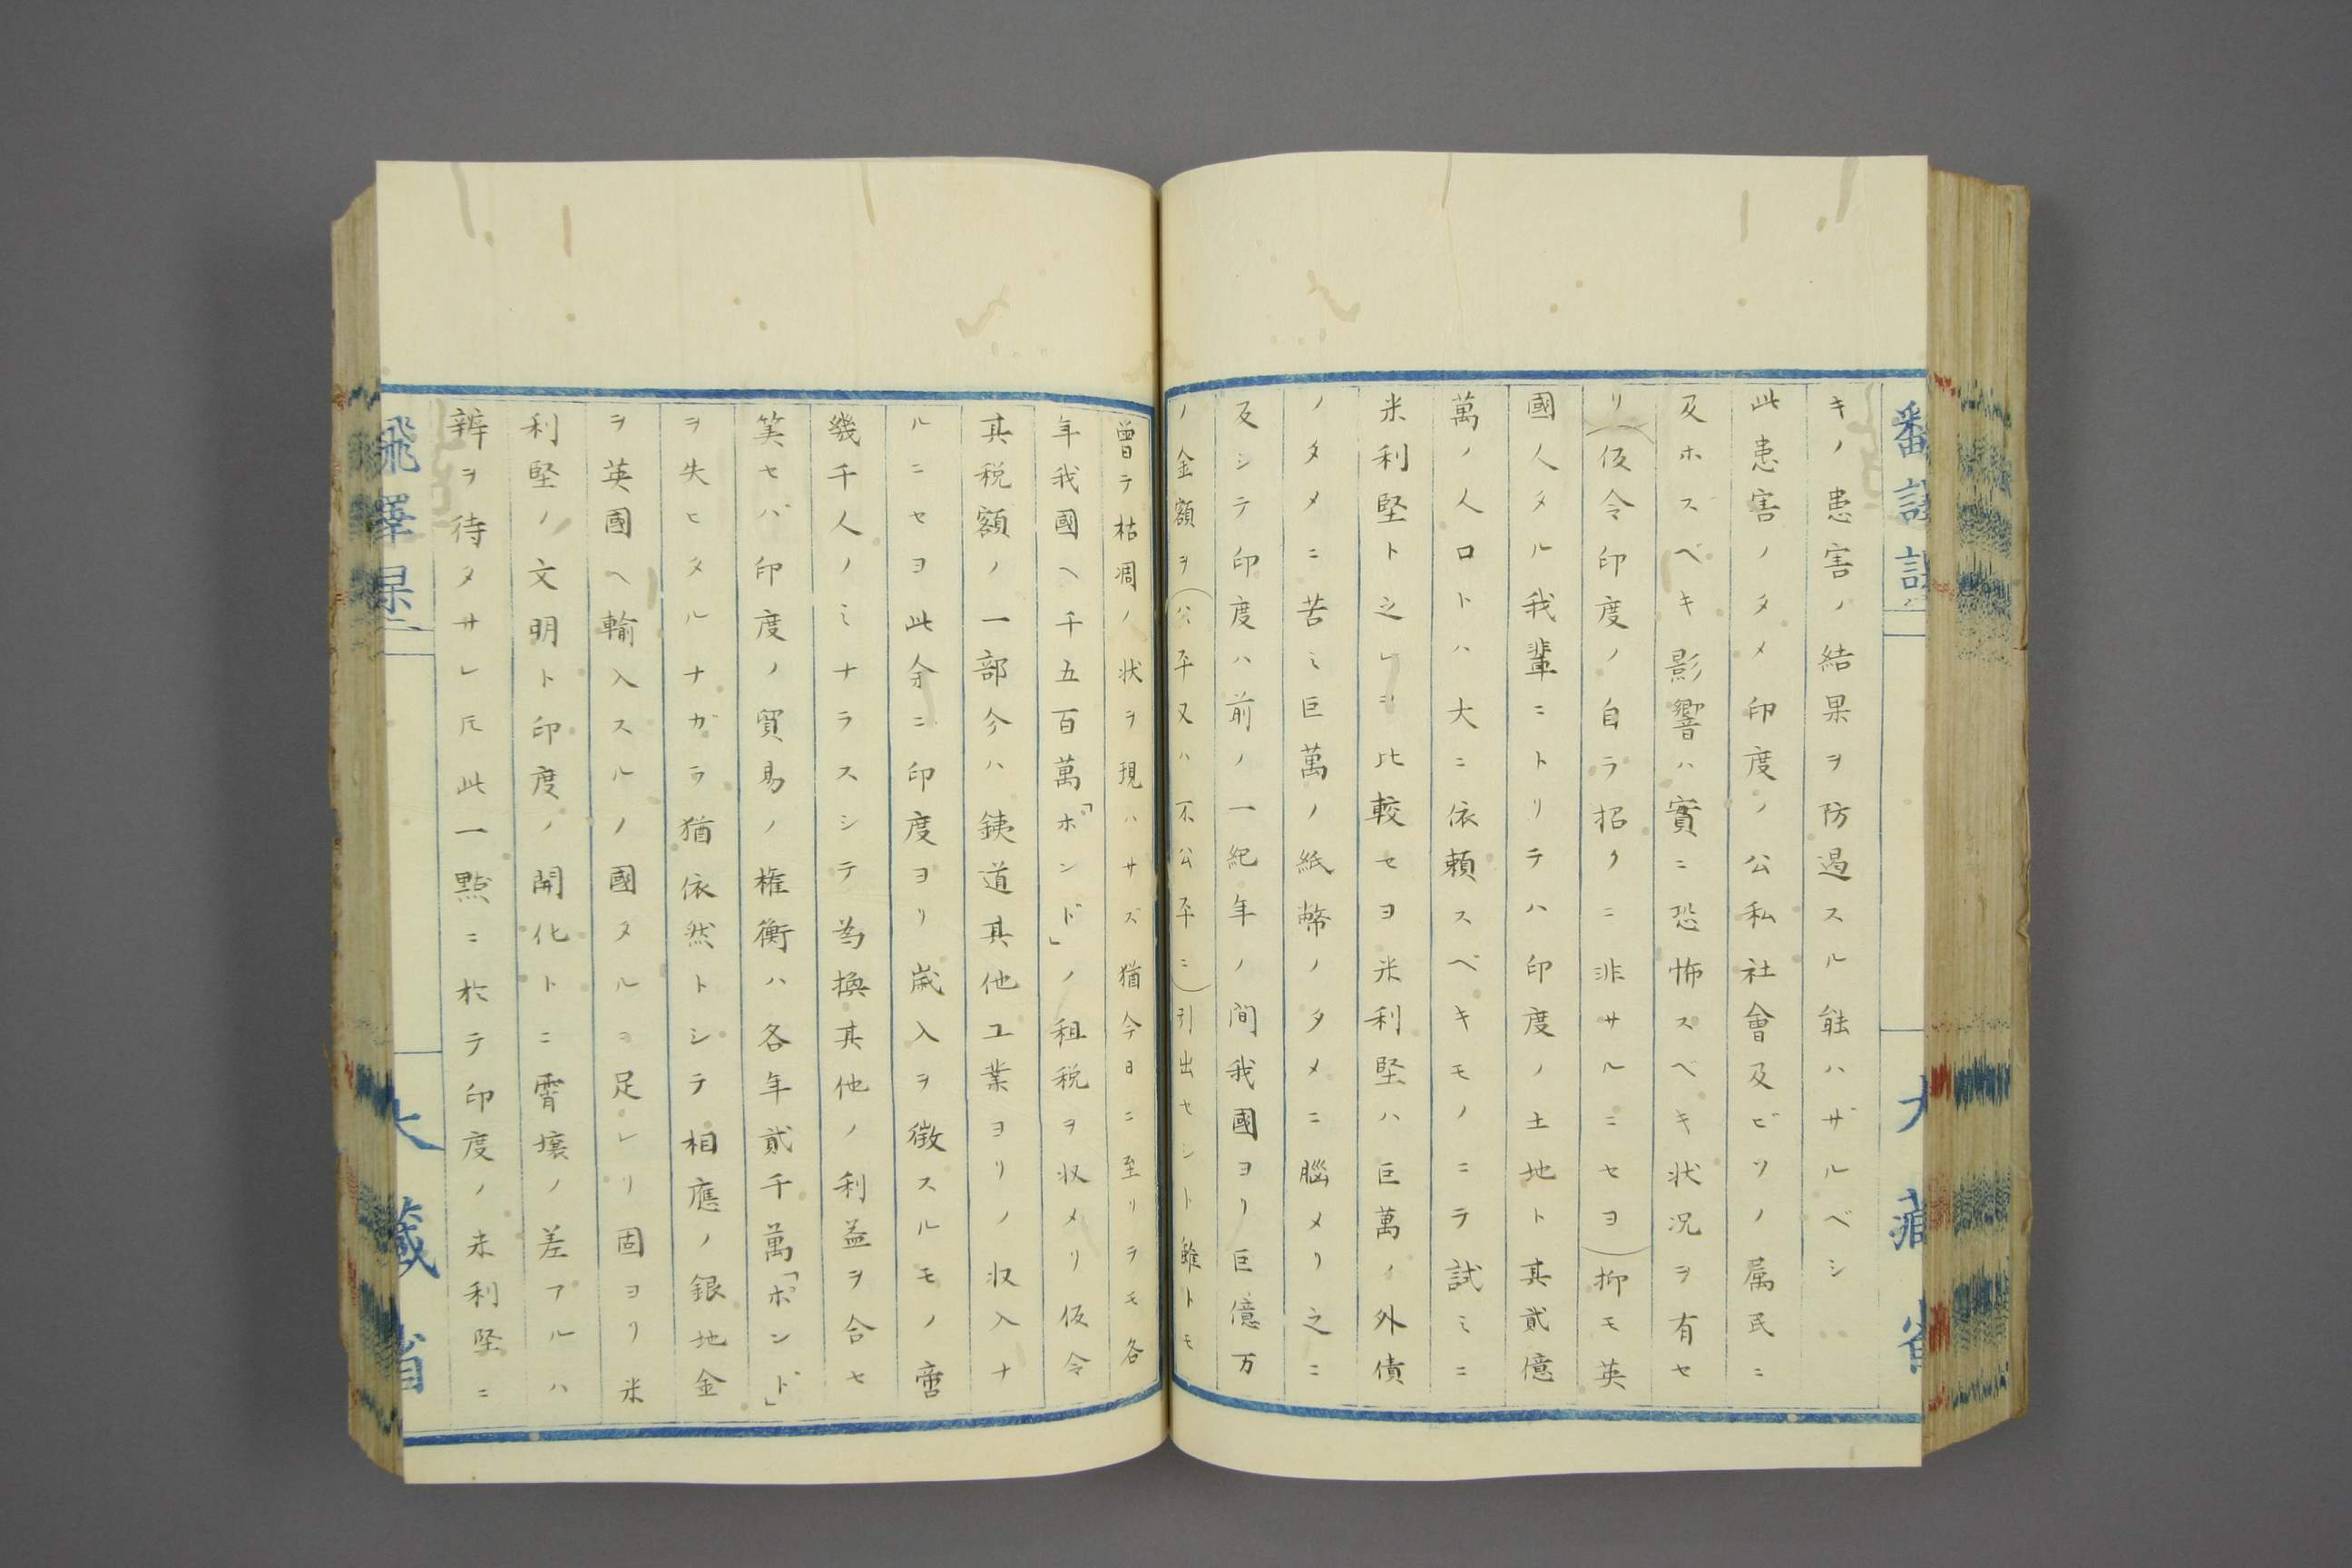 キノ患害ノ結果ヲ防遏スル能ハザルベシ
此患害ノタメ印度ノ公私社會及ビソノ属民ニ
及ホスベキ影響ハ實ニ恐怖スベキ状况ヲ有セ
リ(仮令印度ノ自ラ招クニ非サルニセヨ)抑モ英
國人タル我輩ニトリテハ印度ノ土地ト其貳億
萬ノ人口トハ大ニ依頼スベキモノニテ試ミニ
米利堅ト之レニ比較セヨ米利堅ハ巨萬ノ外債
ノタメニ苦ミ巨萬ノ紙幣ノタメニ腦メリ之ニ
反シテ印度ハ前ノ一紀年ノ間我國ヨリ巨億万
ノ金額ヲ(公平又ハ不公平ニ)引出セシト雖トモ
曽テ枯凋ノ状ヲ現ハサズ猶今日ニ至リテモ各
年我國ヘ千五百萬「ポンド」ノ租税ヲ収メリ仮令
其税額ノ一部分ハ銕道其他工業ヨリノ収入ナ
ルニセヨ此余ニ印度ヨリ歳入ヲ徴スルモノ啻
幾千人ノミナラスシテ為換其他ノ利益ヲ合セ
筭セバ印度ノ貿易ノ権衡ハ各年貳千萬「ポンド」
ヲ失ヒタルナガラ猶依然トシテ相應ノ銀地金
ヲ英國ヘ輸入スルノ國タルヲ足レリ固ヨリ米
利堅ノ文明ト印度ノ開化トニ霄壌ノ差アルハ
辨ヲ待タサレ𪜈此一點ニ於テ印度ノ米利堅ニ
大藏省